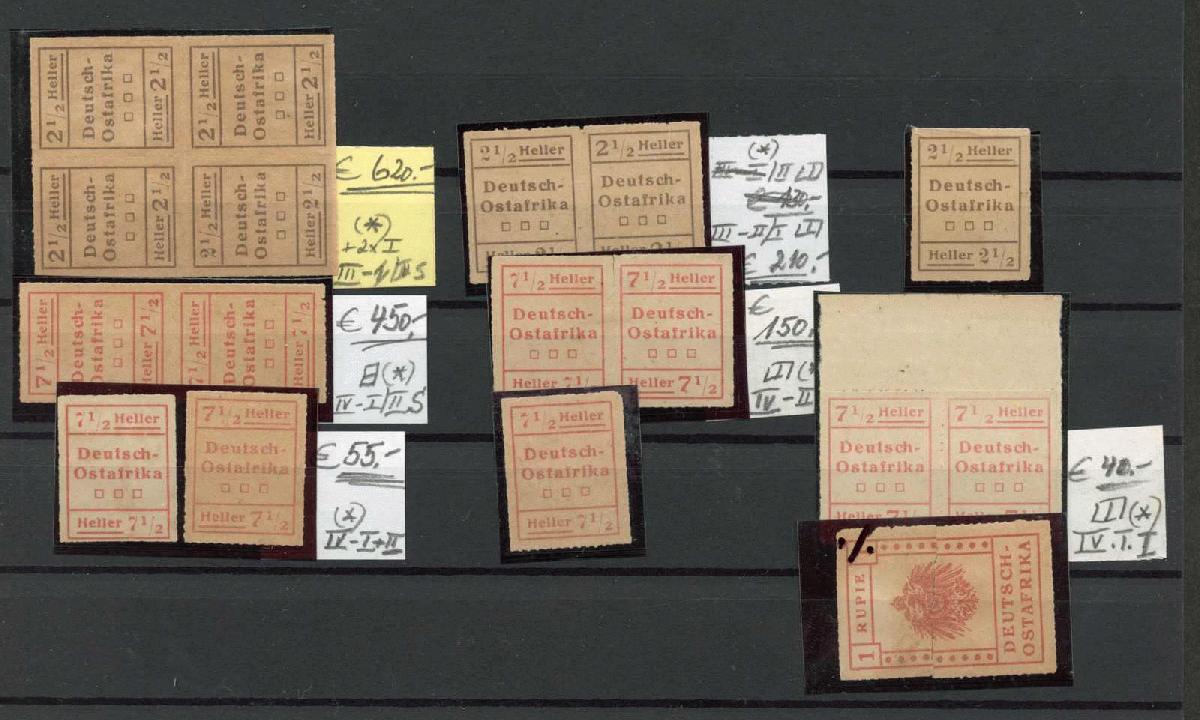 2 1/2 Heller
Deutsch-
Ostafrika
Heller 2 1/2
2 1/2 Heller
Deutsch-
Ostafrika
Heller 2 1/2
2 1/2 Heller
Deutsch-
Ostafrika
Heller 2 1/2
2 1/2 Heller
Deutsch-
Ostafrika
Heller 2 1/2
€ 620.-
(*)
+2x I
2 1/2 Heller
Deutsch-
Ostafrika
Heller 2 1/2
2 1/2 Heller
Deutsch-
Ostafrika
Heller 2 1/2
(*)
III-II/I
€ 210.-
2 1/2 Heller
Deutsch-
Ostafrika
Heller 2 1/2
7 1/2 Heller
Deutsch-
Ostafrika
Heller 7 1/2
7 1/2 Heller
Deutsch-
Ostafrika
Heller 7 1/2
€ 450.-
(*)
IV-I/II S
7 1/2 Heller
Deutsch-
Ostafrika
Heller 7 1/2
7 1/2 Heller
Deutsch-
Ostafrika
Heller 7 1/2
€
150.
(*
IV-II
7 1/2 Heller
Deutsch-
Ostafrika
Heller 7 1/2
7 1/2 Heller
Deutsch-
Ostafrika
Heller 7 1/2
€ 55.-
(*)
IV-I+II
7 1/2 Heller
Deutsch-
Ostafrika
Heller 7 1/2
7 1/2 Heller
Deutsch-
Ostafrika
Heller 7 1/2
7 1/2 Heller
Deutsch-
Ostafrika
Heller 7 1/2
€ 40.-
(*)
IV.I.I
1 RUPIE
DEUTSCH-
OSTAFRIKA